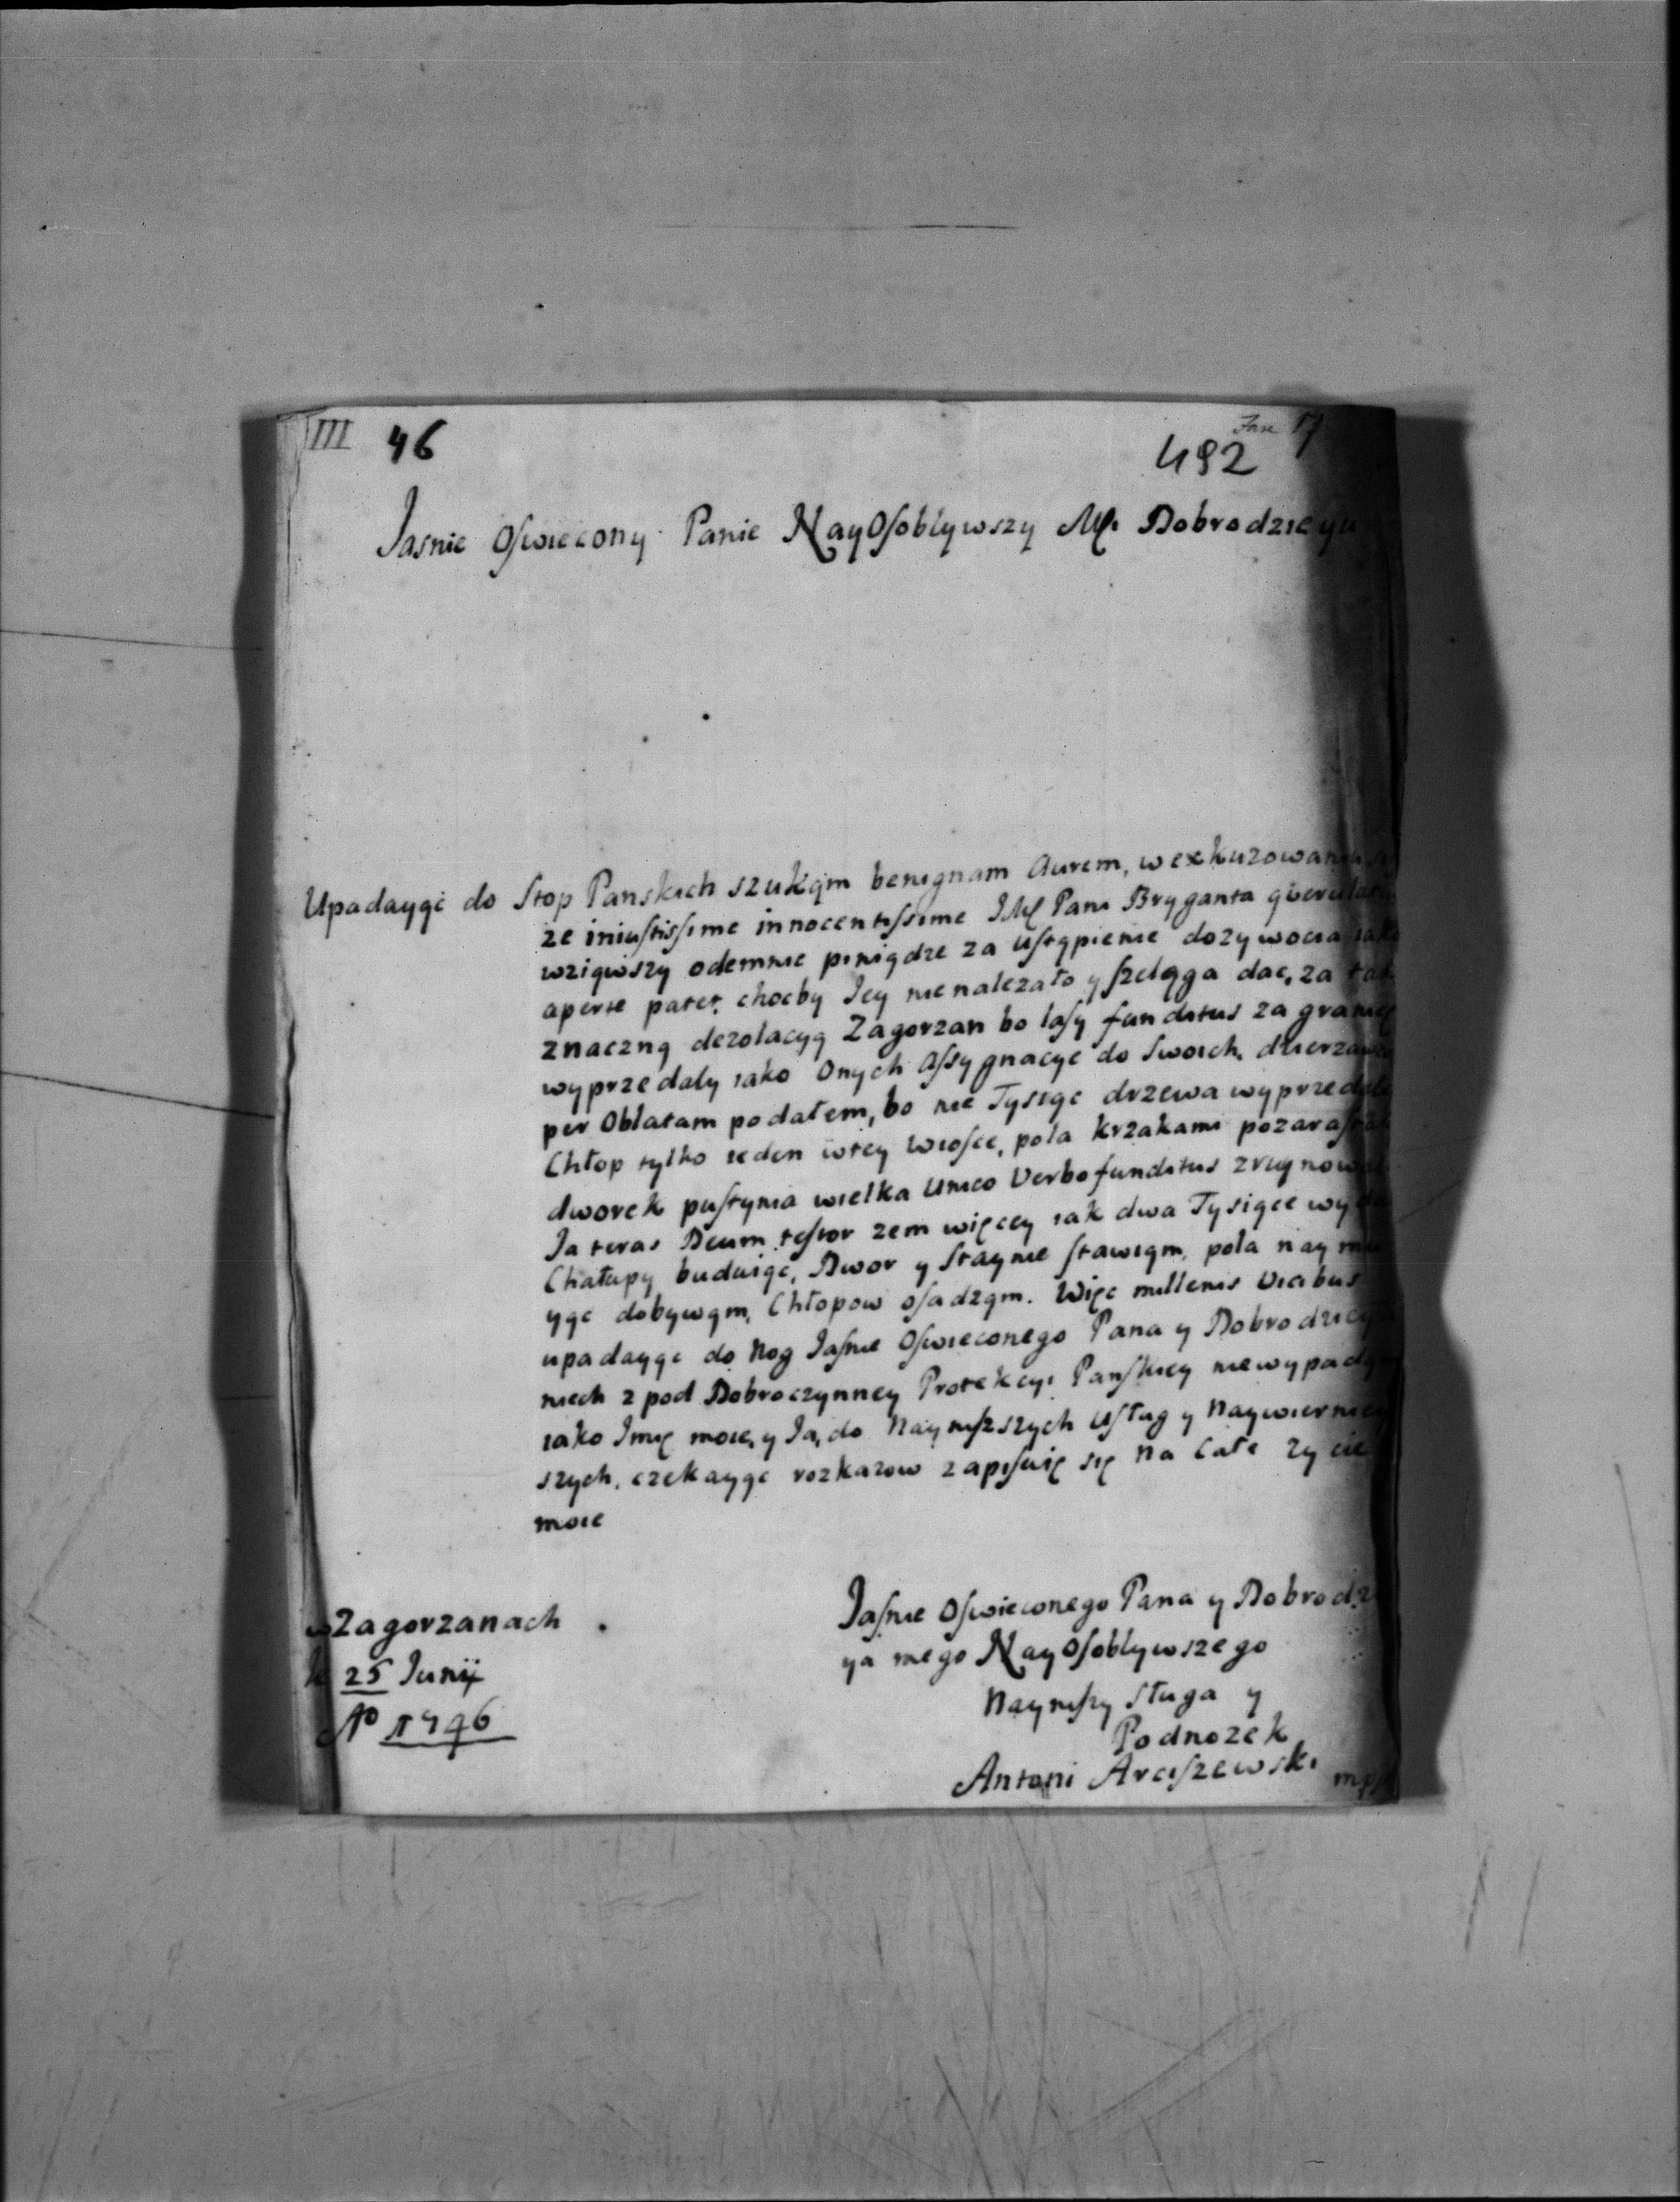 III 46
Fasc 17
492
Jasnie Oswiecony Panie NayOsoblywszy Mci Dobrodzieyu
Upadaygc do Stop Panskich szukąm benignam Aurem, w exkuzowaniu
ze iniustissime innocentissime JMć Pani Bryganta
wziąwszy odemnie piniądze za ustąpienie dozywocia iako
aperte patet, chocby Jey nienalezało y szeląga dac, za tak
znaczną dezolacyą Zagorzan bo lasy funditus za granicę
wyprzedały iako Onych Assygnacye do Swoich dzierzawcow
per Oblatam podałem, bo nie Tysiąc drzewa wyprzedały
Chłop tylko ieden wtey Wiosce, pola krzakami
dworek pustynia wielka Unico Verbo funditus
Ja teras Deum testor zem więcey iak dwa Tysiące
Chałupy buduiąc, Dwor y Staynie stawiąm, pola
yąc dobywąm, Chłopow osadząm. Więc millenis Vicibus
upadayąc do Nog Jasnie Oswieconego Pana y Dobrodzieya
niech z pod Dobroczynney Protekcyi Panskiey niewypadąm
iako Imię moie, y Ja, do Nayniszszych Usług y Naywierniey
szych, czekayąc rozkazow zapisuię się na Całe zycie
moie
w Zagorzanach
25 Junij
Ao 1746
Jasnie Oswieconego Pana y Dobrodzie
ya mego NayOsoblywszego
Nayniszy Sługa y
Podnozek
Antoni Arciszewski mpp